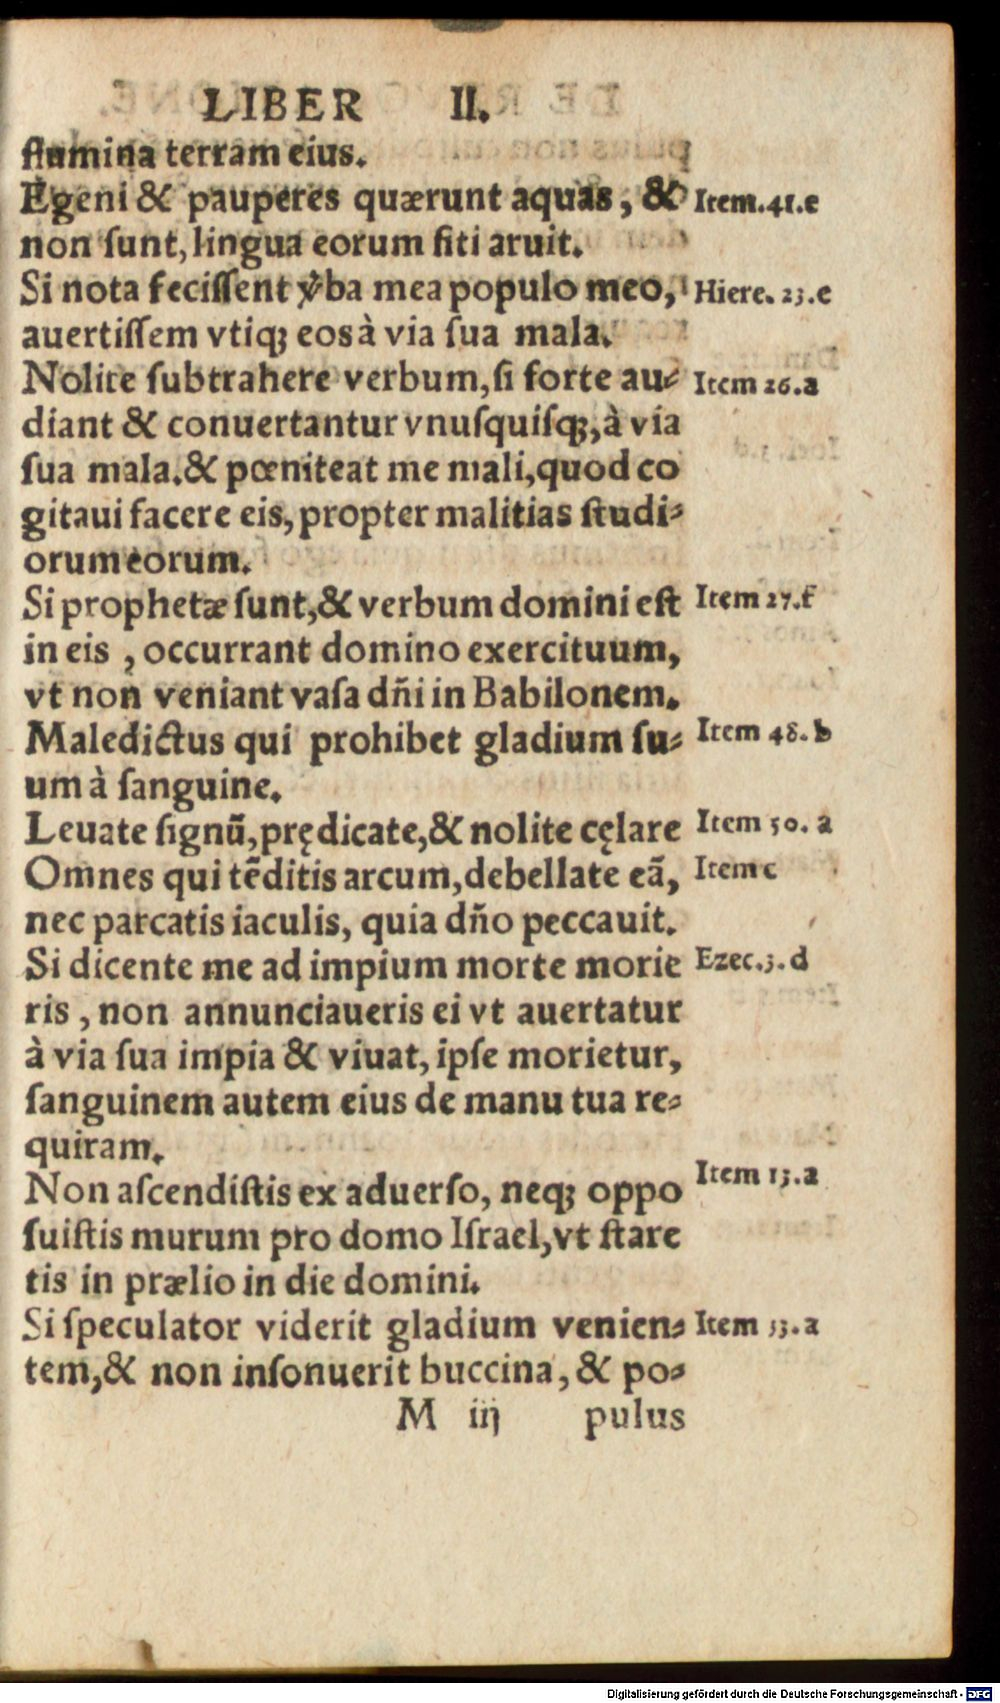 LIBER II.
flumina terram eius.
Egeni & pauperes quærunt aquas, & Item.41.e
non ſunt, lingua eorum ſiti aruit.
Si nota feciſſent v̾ba mea populo meo, Hiere. 23.e
auertiſſem vtiqꝫ eos à via ſua mala.
Nolite ſubtrahere verbum, ſi forte au⸗ Item 26.a
diant & conuertantur vnuſquiſqꝫ, à via
ſua mala. & pœniteat me mali, quod co
gitaui facere eis, propter malitias ſtudi⸗
orum eorum.
Si prophetæ ſunt, & verbum domini eſt Item 27.f
in eis , occurrant domino exercituum,
vt non veniant vaſa dn̄i in Babilonem.
Maledictus qui prohibet gladium ſu⸗ Item 48. b
um à ſanguine.
Leuate ſignũ, prędicate, & nolite cęlare Item 50. a
Omnes qui tẽditis arcum, debellate eã, Item c
nec parcatis iaculis, quia dn̄o peccauit.
Si dicente me ad impium morte morie Ezec.3. d
ris , non annunciaueris ei vt auertatur
à via ſua impia & viuat, ipſe morietur,
ſanguinem autem eius de manu tua re⸗
quiram.
Non aſcendiſtis ex aduerſo, neqꝫ oppo Item 13.a
ſuiſtis murum pro domo Iſrael, vt ſtare
tis in prælio in die domini.
Si ſpeculator viderit gladium venien⸗ Item 33.a
tem, & non inſonuerit buccina, & po⸗
M iij pulus
Digitalisierung gefördert durch die Deutsche Forschungsgemeinschaft - DFG